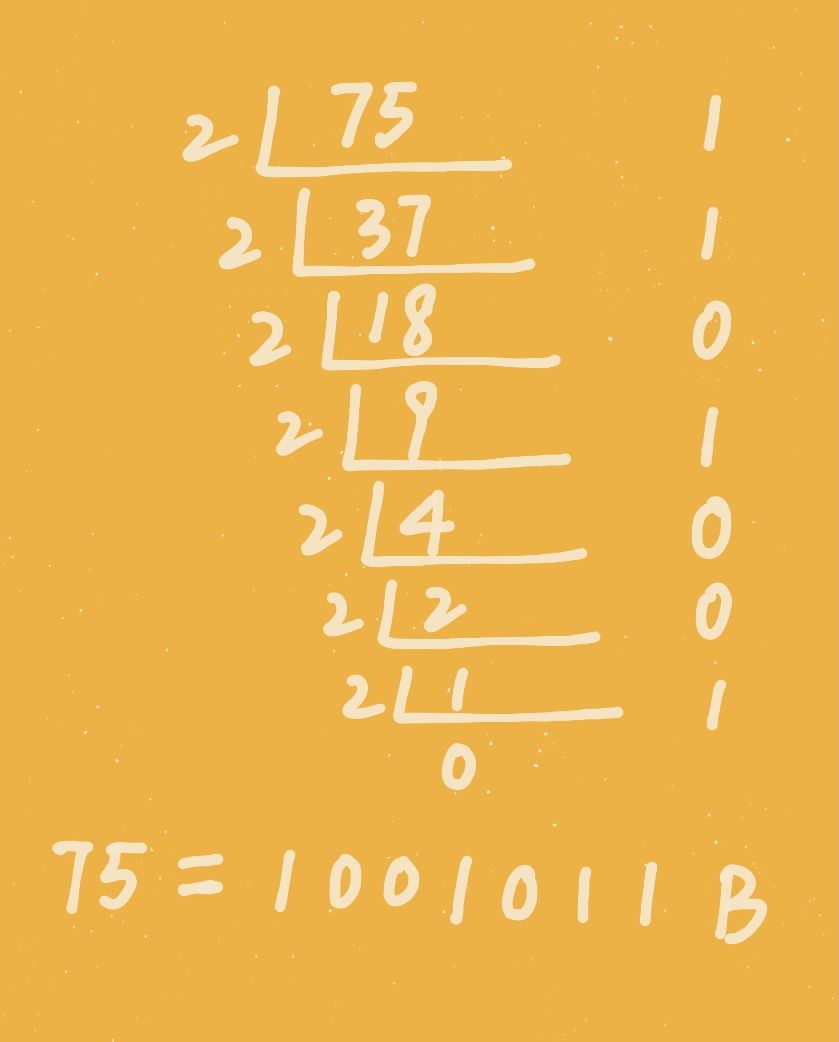 2 75 1
2 37 1
2 18 0
2 9 1
2 4 0
2 2 0
2 1 1
0
75 = 1001011 B